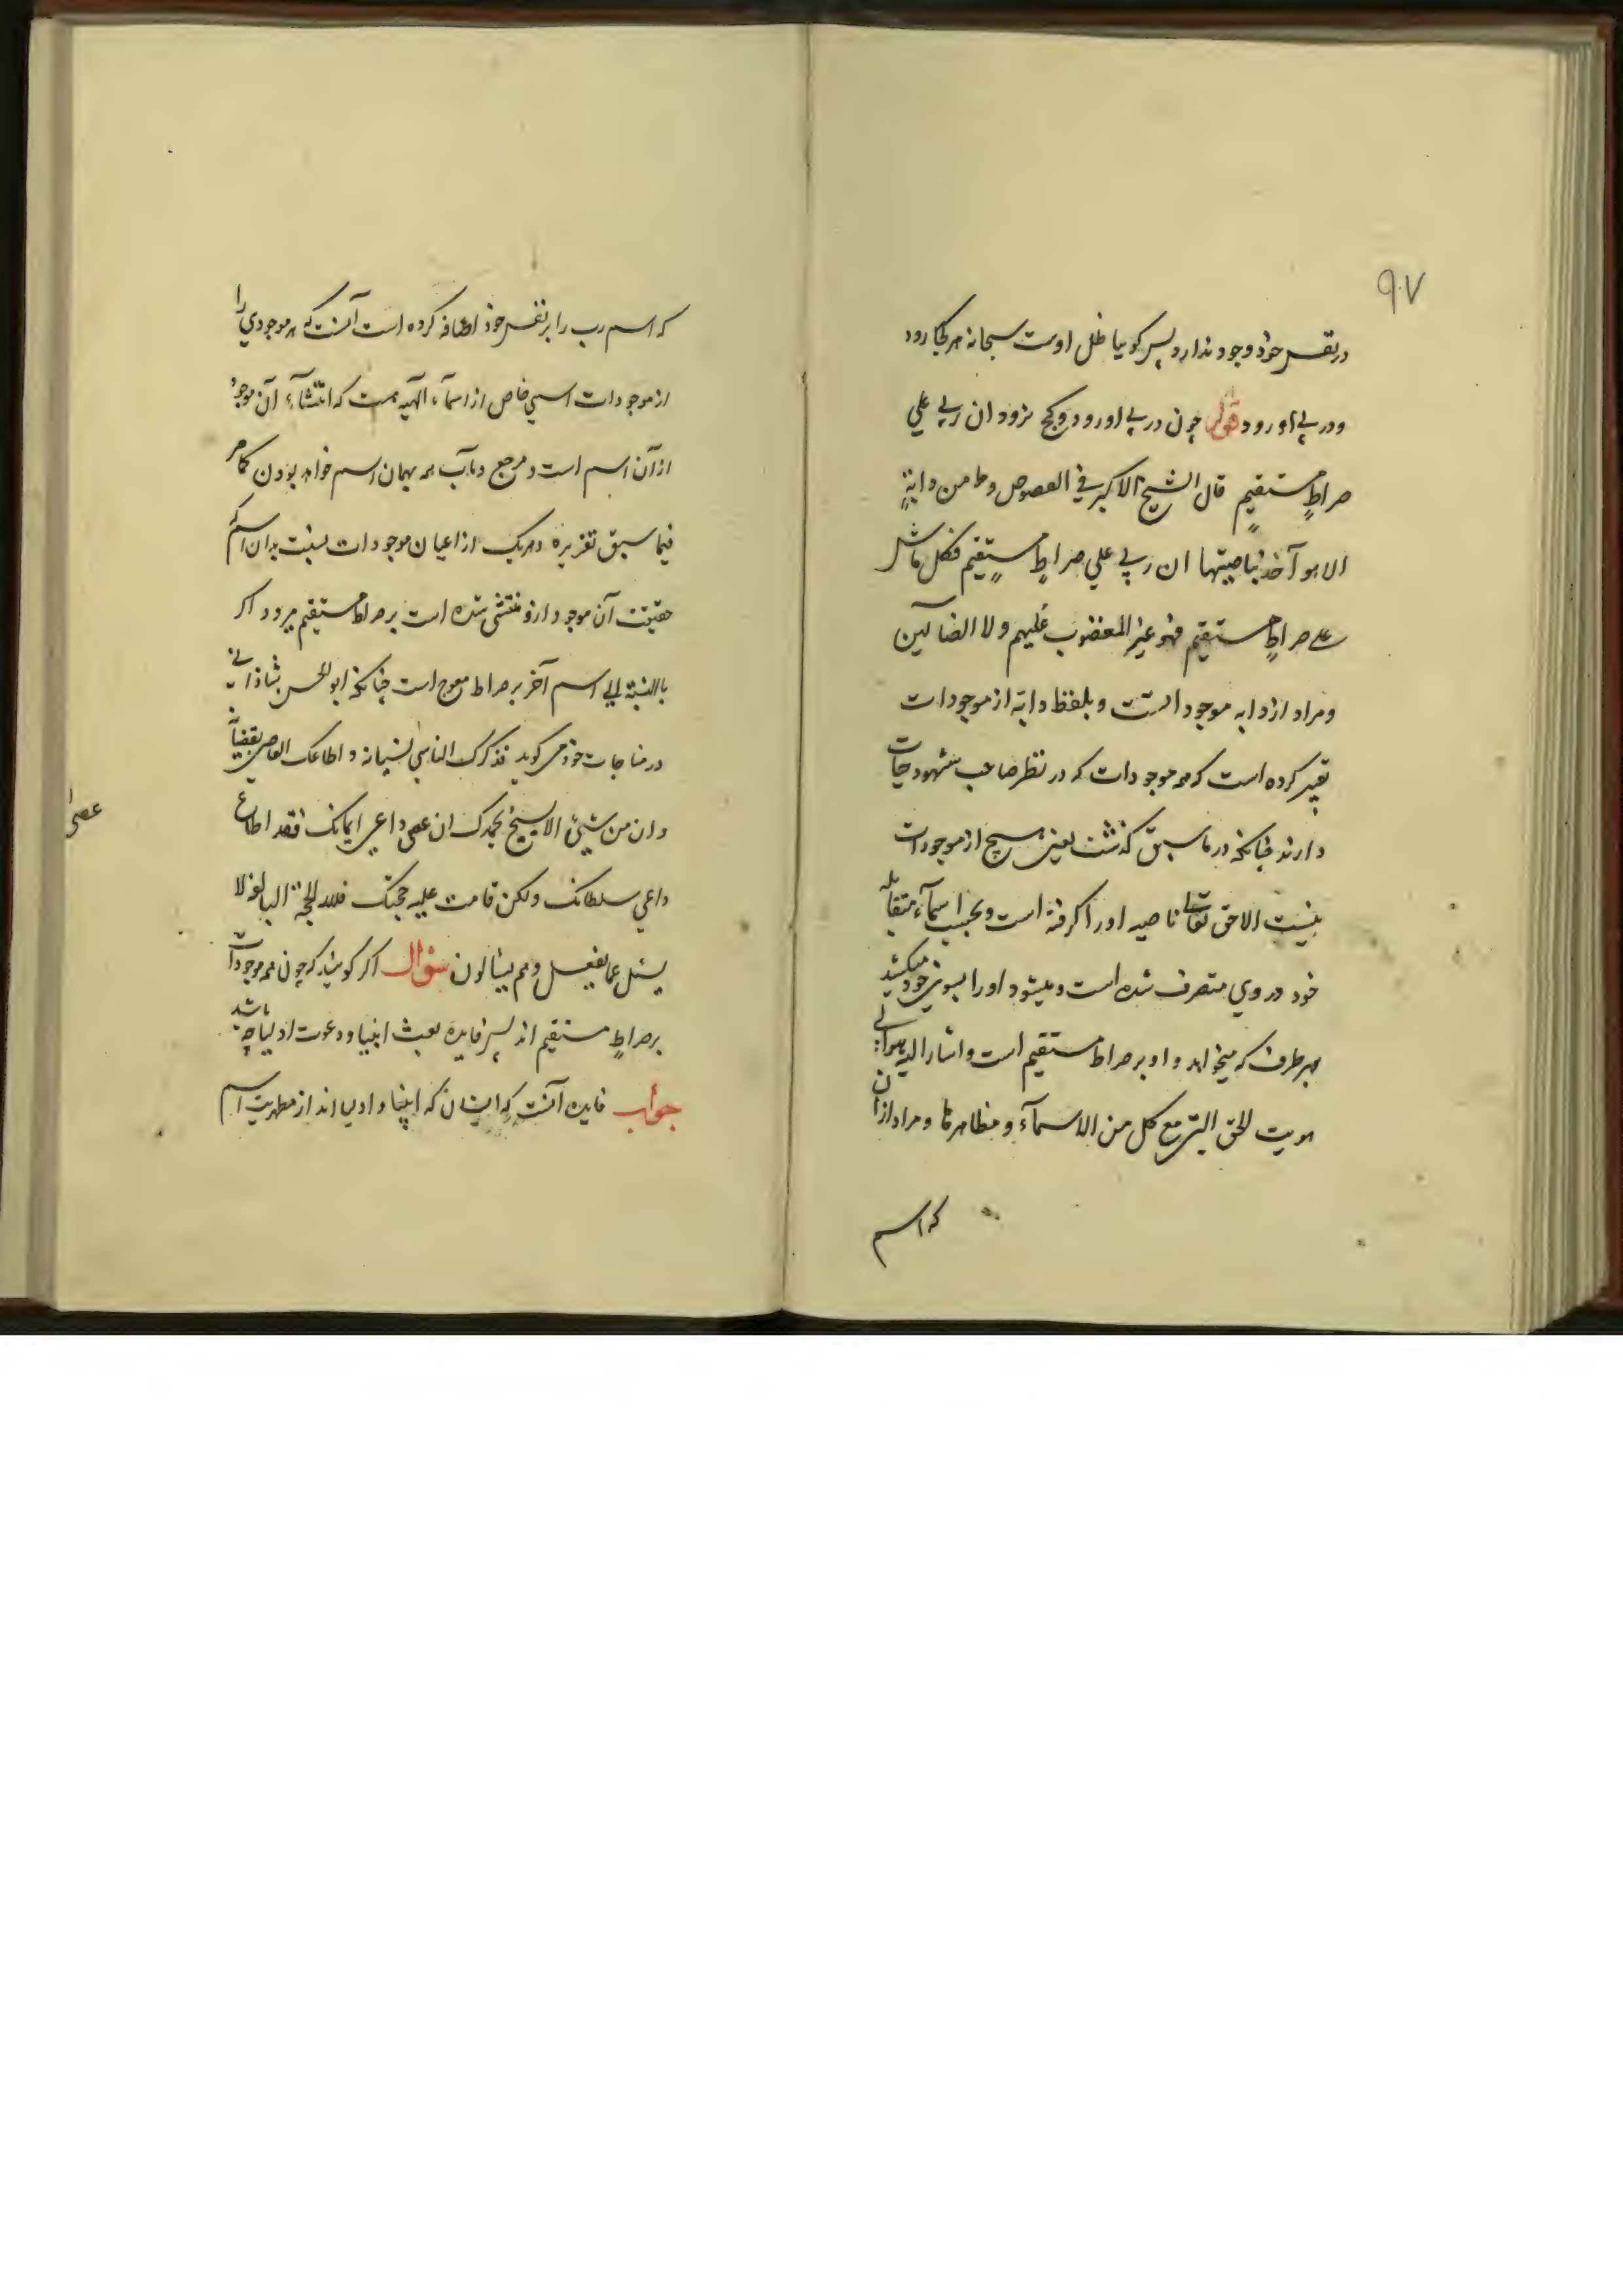 ۹۷
در نفس خود وجود ندارد پس کویا ظل اوست سبحانه هر کجا رود
ودر پی او رود قوله چون در پی او رود وکج نرود ان ربی علی
صراطٍ مستقیمٍ قال الشیخ الاکبر فی الفصوص وما من دابةٍ
الا هو آخذ بناصیتها ان ربی علی صراطٍ مستقیم فکل ماش
علی صراطٍ مستقیم فهو غیر المغضوب علیهم ولا الضآلین
ومراد از دابه موجود است وبلفظ دابه از موجودات
تعبیر کرده است که همه موجودات که در نظر صاحب شهود حیات
دارند چنانکه در ما سبق کذشت یعنی هیچ از موجودات
نیست الا حق تعالی ناصیه او را کرفته است وبحسب اسمآء متقابله
خود در وی متصرف شده است ومیشود او را بسوی خود میکشد
بهر طرف که میخواهد واو بر صراط مستقیم است واشار الیه بهو الی
هویت الحق التی مع کل من الاسمآء ومظاهرها ومراد از آن
که اسم
که اسم رب را بر نفس خود اضافه کرده است آنست که هر موجودی را
از موجودات اسمی خاص از اسمآء الهیه هست که انتشآء آن موجود
از آن اسم است ومرجع ومآب همه بهمان اسم خواهد بودن کما مر
فیما سبق تقریره وهر یک از اعیان موجودات بنسبت بدان اسم که
حقیقت آن موجود ازو منتشی شده است بر صراط مستقیم میرود اکر
باالنسبة الی اسم آخر بر صراط معوج است چنانکه ابو الحسن شاذلی
در مناجات خود می کوید فذکرک الناسی لنسیانه واطاعک العاصی بعصیانه
وان من شیئ الا یسبح بحمدک ان عصی داعی ایمانک فقد اطاع
عصی
داعی سلطانک ولکن قامت علیه حجتک فلله الحجة البالغة لا
یسئل عما یفعل وهم یسئالون سؤال اکر کویند که چون همه موجودات
بر صراطٍ مستقیم اند پس فایده بعث انبیا ودعوت اولیا چه باشد
جواب فایده آنست که ایشان که انبیا واولیا اند از مظهریت اسم